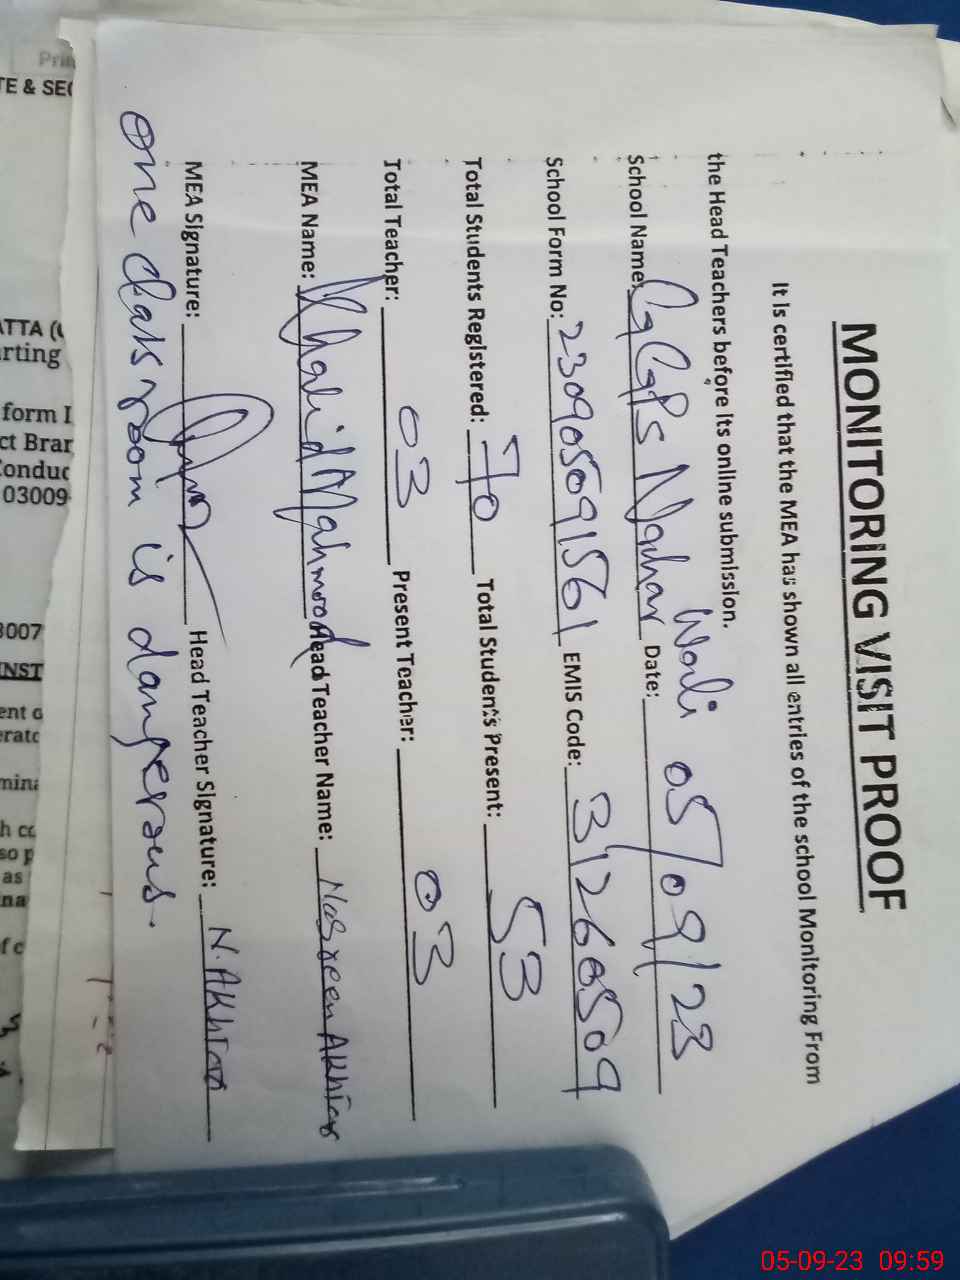 MONITORING VISIT PROOF
It is certified that the MEA has shown all entries of the school Monitoring From
the Head Teachers before its online submission.
School Name: GGPS Nahar Wali Date: 05/09/23
School Form No: 230905091561 EMIS Code: 31260509
Total Students Registered: 70 Total Students Present: 53
Total Teacher: 03 Present Teacher: 03
MEA Name: Khalid Mahmood Head Teacher Name: Nasreen Akhtar
MEA Signature: Head Teacher Signature: N. Akhtar
one class room is dangerous.
TE & SE
ATTA (
rting
form I
ct Bran
Conduc
03009
3007
INST
ent o
erato
mina
h co
so p
as
na
f c
05-09-23 09:59